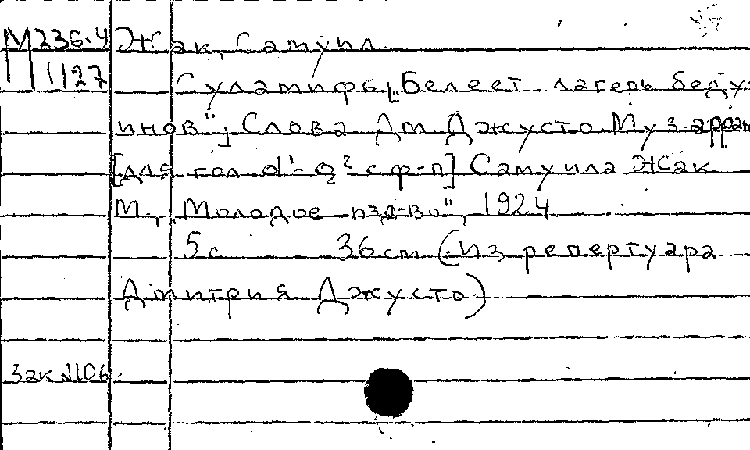 М236.4 Жак, Самуил
1127 Суламифь „Белеет лагерь беду
инов"; Слова Дм Джусто Муз арран
[для гол d¹-g² с ф-п] Самуила Жак
М., „Молодое изд-во", 1924
5с 36cm (Из репертуара
Дмитрия Джусто)
Зак №106